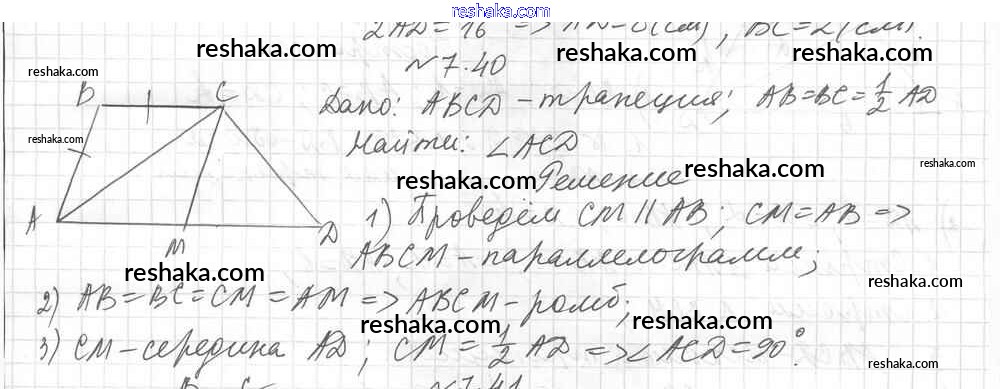 reshaka.com
2AD = 16 => AD = 8 (см), BC = 2 (см).
reshaka.com
reshaka.com
№7.40
reshaka.com
B C
Дано: ABCD - трапеция; AB=BC=1/2 AD
reshaka.com
Найти: ∠ACD
reshaka.com
reshaka.com
reshaka.com
Решение
A M D
1) Проведём CM || AB; CM = AB =>
ABCM - параллелограмм;
reshaka.com
reshaka.com
2) AB = BC = CM = AM => ABCM - ромб;
reshaka.com
reshaka.com
3) CM - середина AD; CM = 1/2 AD => ∠ACD = 90°.
reshaka.com
№7.41